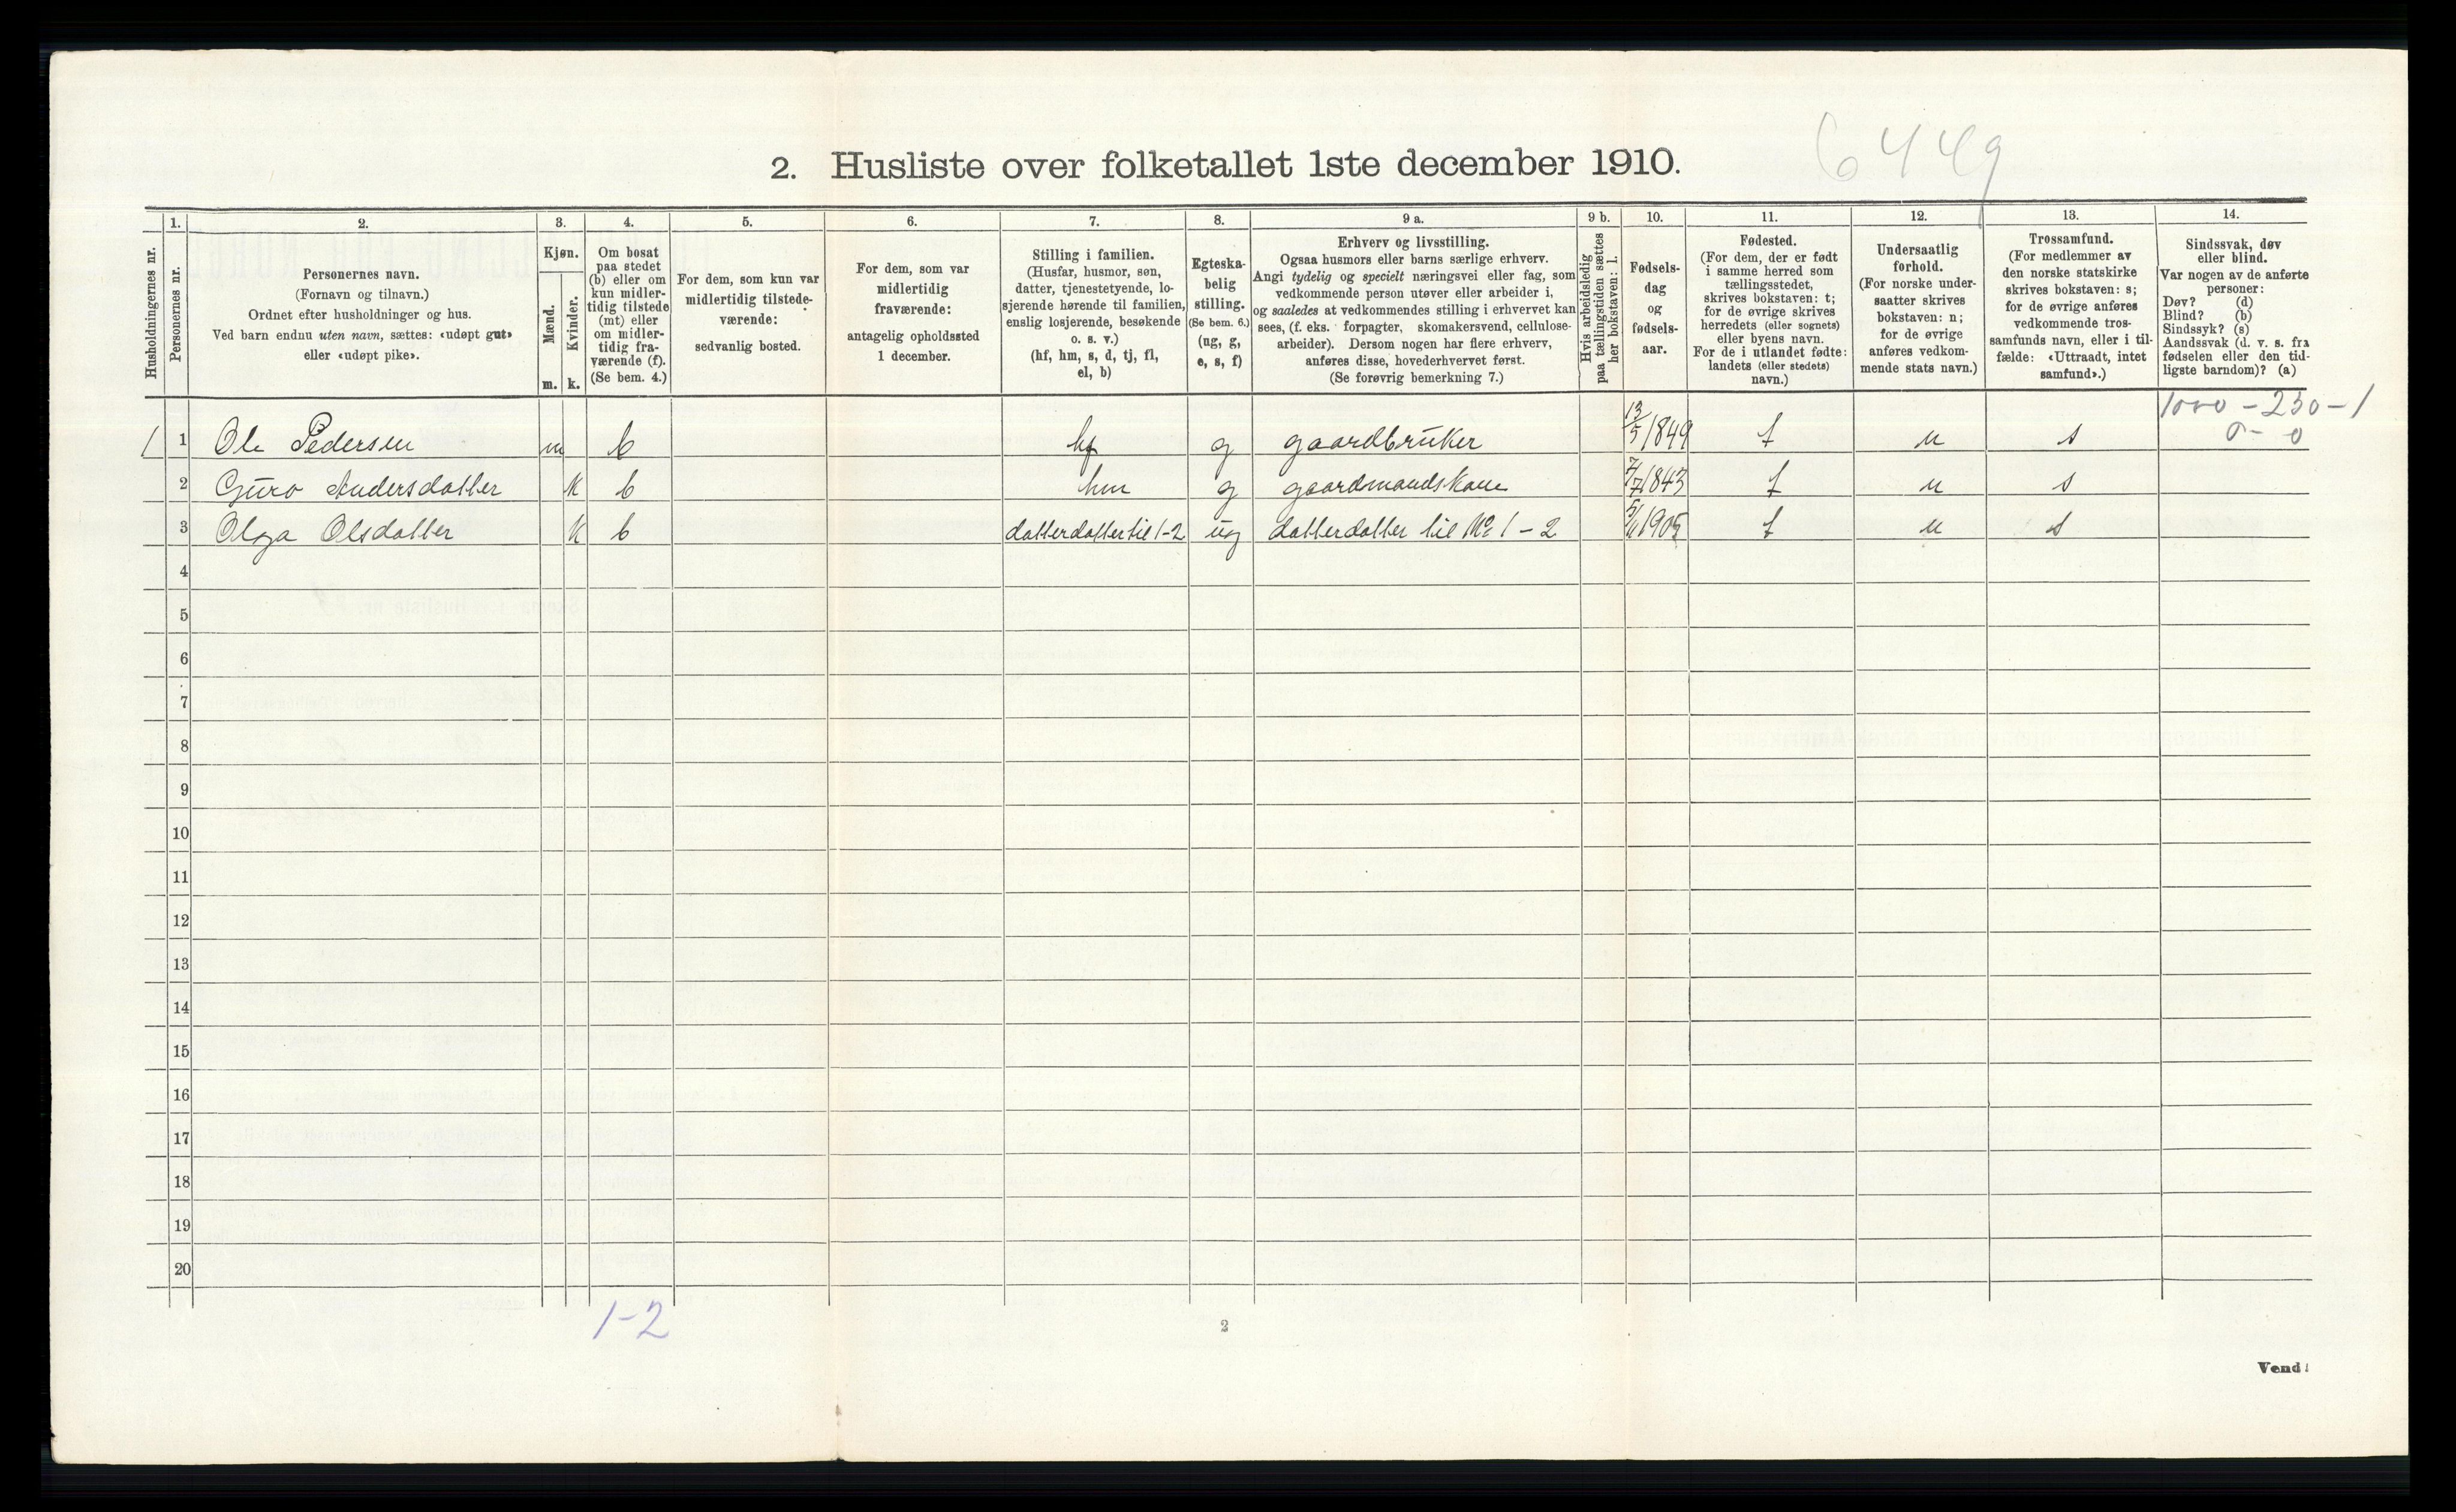 6449
2. Husliste over folketallet 1ste december 1910.
1. 2. 3. 4. 5. 6. 7. 8. 9 a. 9 b. 10. 11. 12. 13. 14.
Husholdningernes nr.
Personernes nr.
Personernes navn.
(Fornavn og tilnavn.)
Ordnet efter husholdninger og hus.
Ved barn endnu uten navn, sættes: «udøpt gut»
eller «udøpt pike».
Kjøn.
Mænd.
Kvinder.
m. k.
Om bosat
paa stedet
(b) eller om
kun midler-
tidig tilstede
(mt) eller
om midler-
tidig fra-
værende (f).
(Se bem. 4.)
For dem, som kun var
midlertidig tilstede-
værende:
sedvanlig bosted.
For dem, som var
midlertidig
fraværende:
antagelig opholdssted
1 december.
Stilling i familien.
(Husfar, husmor, søn,
datter, tjenestetyende, lo-
sjerende hørende til familien,
enslig losjerende, besøkende
o. s. v.)
(hf, hm, s, d, tj, fl,
el, b)
Egteska-
belig
stilling.
(Se bem. 6.)
(ug, g,
e, s, f)
Erhverv og livsstilling.
Ogsaa husmors eller barns særlige erhverv.
Angi tydelig og specielt næringsvei eller fag, som
vedkommende person utøver eller arbeider i,
og saaledes at vedkommendes stilling i erhvervet kan
sees, (f. eks. forpagter, skomakersvend, cellulose-
arbeider). Dersom nogen har flere erhverv,
anføres disse, hovederhvervet først.
(Se forøvrig bemerkning 7.)
Hvis arbeidsledig
paa tællingstiden sættes
her bokstaven: l.
Fødsels-
dag
og
fødsels-
aar.
Fødested.
(For dem, der er født
i samme herred som
tællingsstedet,
skrives bokstaven: t;
for de øvrige skrives
herredets (eller sognets)
eller byens navn.
For de i utlandet fødte:
landets (eller stedets)
navn.)
Undersaatlig
forhold.
(For norske under-
saatter skrives
bokstaven: n;
for de øvrige
anføres vedkom-
mende stats navn.)
Trossamfund.
(For medlemmer av
den norske statskirke
skrives bokstaven: s;
for de øvrige anføres
vedkommende tros-
samfunds navn, eller i til-
fælde: «Uttraadt, intet
samfund».)
Sindssvak, døv
eller blind.
Var nogen av de anførte
personer:
Døv? (d)
Blind? (b)
Sindssyk? (s)
Aandssvak (d. v. s. fra
fødselen eller den tid-
ligste barndom)? (a)
1000 - 250 - 1
0 - 0
1 1 Ole Pedersen m b hf g gaardbruker 13/5 1849 t n s
2 Guro Andersdatter k b hm g gaardmandskone 7/7 1843 t n s
3 Olga Olsdatter k b datterdatter til 1-2 ug datterdatter til No 1-2 5/11 1905 t n s
4
5
6
7
8
9
10
11
12
13
14
15
16
17
18
19
20
1-2
2
Vend!